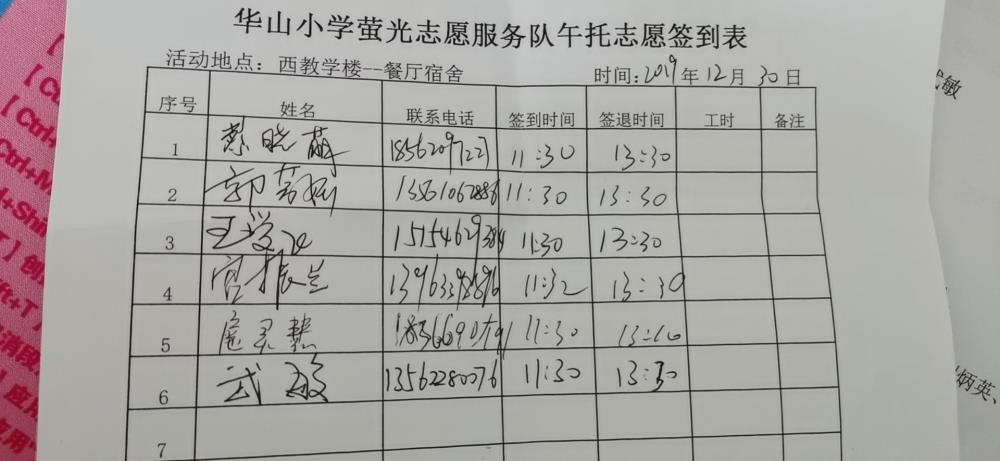 华山小学萤光志愿服务队午托志愿签到表
活动地点：西教学楼--餐厅宿舍 时间：2019年12月30日
序号 姓名 联系电话 签到时间 签退时间 工时 备注
1 蔡晓萌 18562097227 11:30 13:30
2 郭芳娟 13561062886 11:30 13:30
3 王学 15154629384 11:30 13:30
4 宫振兰 13963398896 11:32 13:30
5 灵慧 11:30 13:10
6 武敏 13562280076 11:30 13:30
7
敏
炳英、
【Ctrl+
Ctrl+M
+Shi